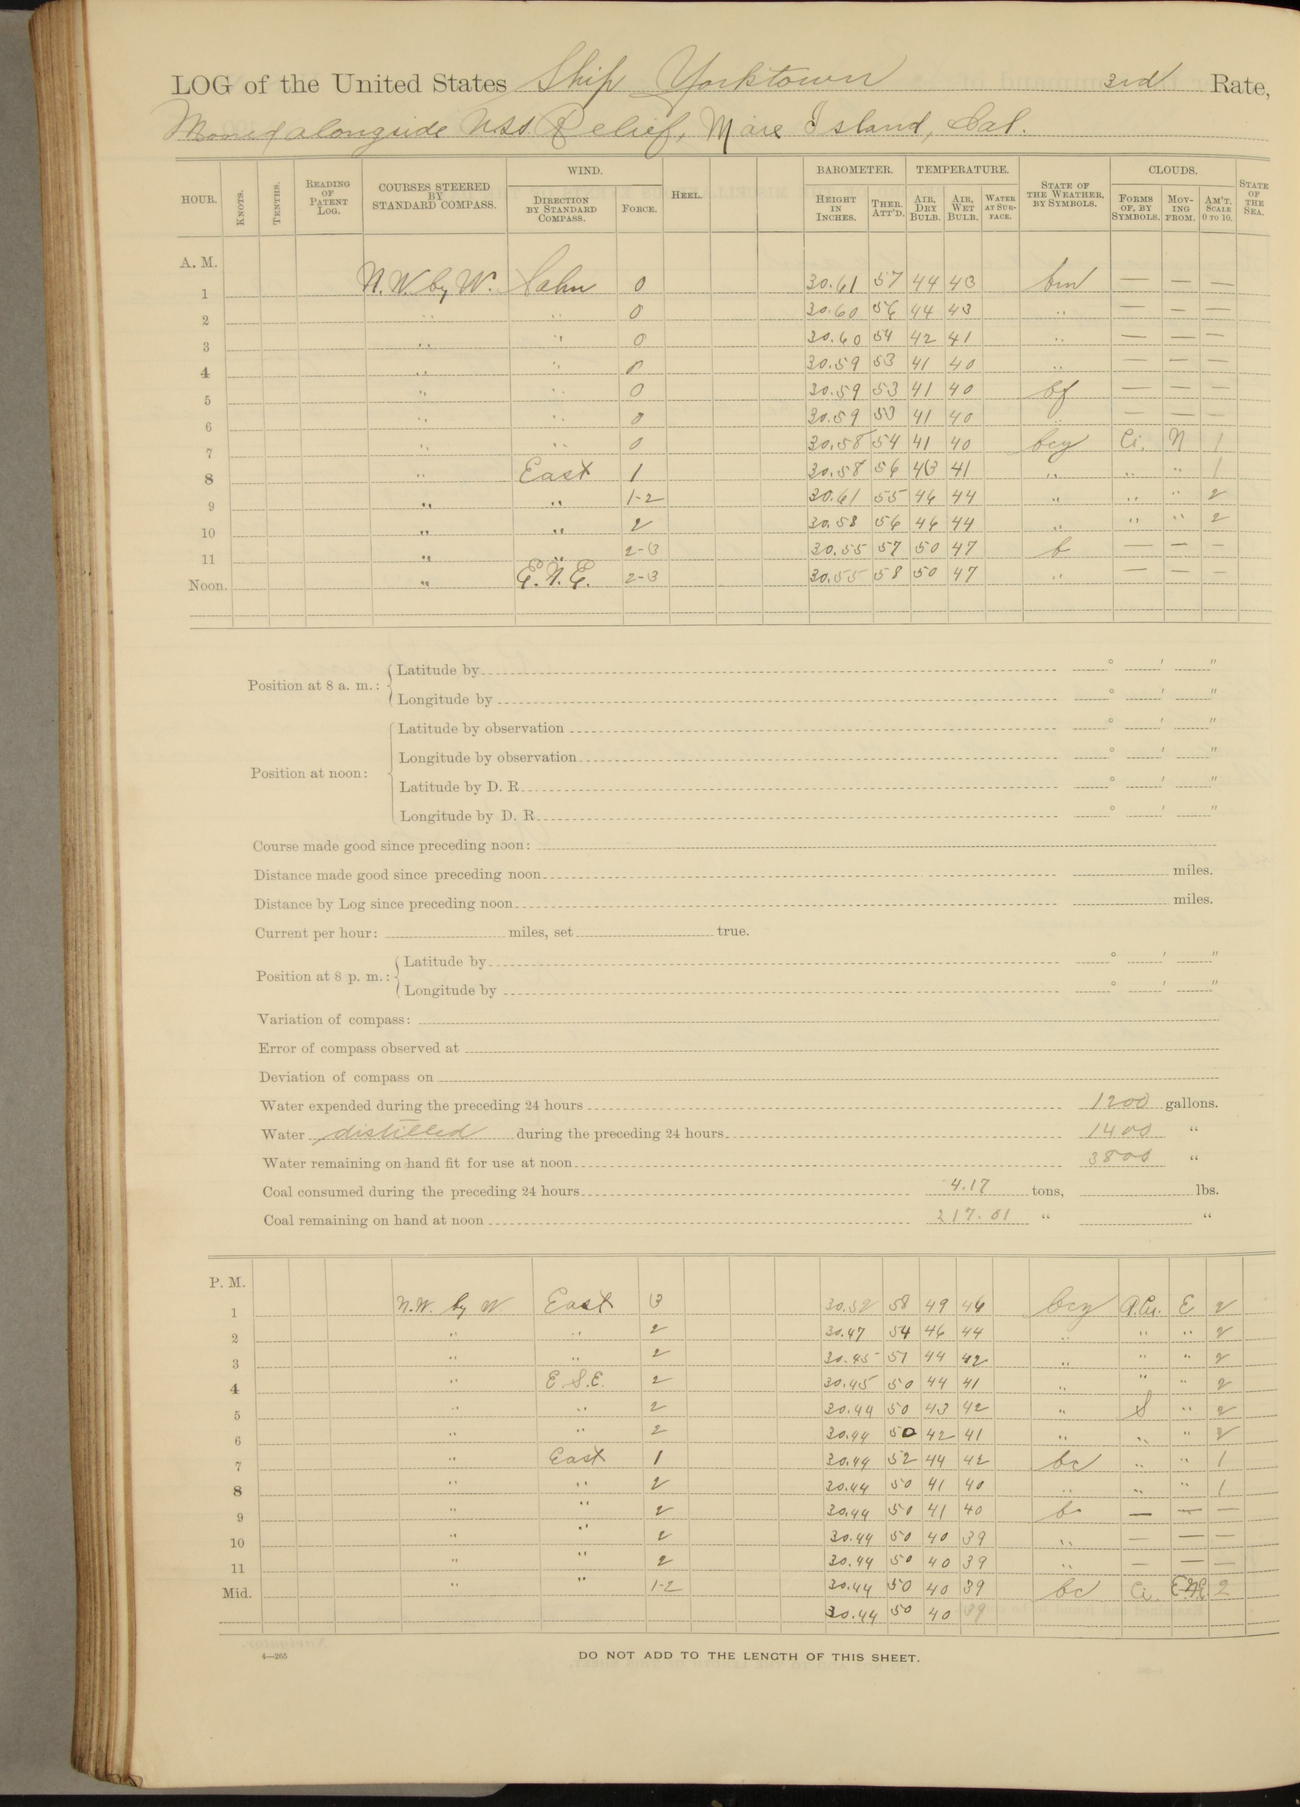 LOG of the United States Ship Yorktown 3rd Rate,
Moored alongside U.S.S. Relief, Mare Island, Cal.
HOUR. KNOTS. TENTHS. READING OF PATENT LOG. COURSES STEERED BY STANDARD COMPASS. WIND. DIRECTION BY STANDARD COMPASS. FORCE. HEEL. BAROMETER. HEIGHT IN INCHES. THER. ATT'D. TEMPERATURE. AIR, DRY BULB. AIR, WET BULB. WATER AT SURFACE. STATE OF THE WEATHER, BY SYMBOLS. CLOUDS. FORMS OF, BY SYMBOLS. MOVING FROM. AM'T. SCALE 0 TO 10. STATE OF THE SEA.
A. M.
1 N.W. by W. Calm 0 30.61 57 44 43 bm — — —
2 " " 0 30.60 56 44 43 " — — —
3 " " 0 30.60 54 42 41 " — — —
4 " " 0 30.59 53 41 40 " — — —
5 " " 0 30.59 53 41 40 bf — — —
6 " " 0 30.59 53 41 40 " — — —
7 " " 0 30.58 54 41 40 bcy Ci. N 1
8 " East 1 30.58 56 43 41 " " " 1
9 " " 1-2 30.61 55 46 44 " " " 2
10 " " 2 30.58 56 46 44 " " " 2
11 " " 2-3 30.55 57 50 47 b — — —
Noon. " E.N.E. 2-3 30.55 58 50 47 " — — —
Position at 8 a. m.: Latitude by ° ′ ″
Longitude by ° ′ ″
Position at noon: Latitude by observation ° ′ ″
Longitude by observation ° ′ ″
Latitude by D. R. ° ′ ″
Longitude by D. R. ° ′ ″
Course made good since preceding noon:
Distance made good since preceding noon miles.
Distance by Log since preceding noon miles.
Current per hour: miles, set true.
Position at 8 p. m.: Latitude by ° ′ ″
Longitude by ° ′ ″
Variation of compass:
Error of compass observed at
Deviation of compass on
Water expended during the preceding 24 hours 1200 gallons.
Water distilled during the preceding 24 hours 1400 "
Water remaining on hand fit for use at noon 3800 "
Coal consumed during the preceding 24 hours 4.17 tons, lbs.
Coal remaining on hand at noon 217.01 " "
P. M.
1 N.W. by W East 3 30.52 58 49 46 bcy A.Cu. E 2
2 " " 2 30.47 54 46 44 " " " 2
3 " " 2 30.45 51 44 42 " " " 2
4 " E.S.E. 2 30.45 50 44 41 " " " 2
5 " " 2 30.44 50 43 42 " S " 2
6 " " 2 30.44 50 42 41 " " " 2
7 " East 1 30.44 52 44 42 bc " " 1
8 " " 2 30.44 50 41 40 " " " 1
9 " " 2 30.44 50 41 40 b — — —
10 " " 2 30.44 50 40 39 " — — —
11 " " 2 30.44 50 40 39 " — — —
Mid. " " 1-2 30.44 50 40 39 bc Ci. E.N.E. 2
30.44 50 40 39
4—265
DO NOT ADD TO THE LENGTH OF THIS SHEET.